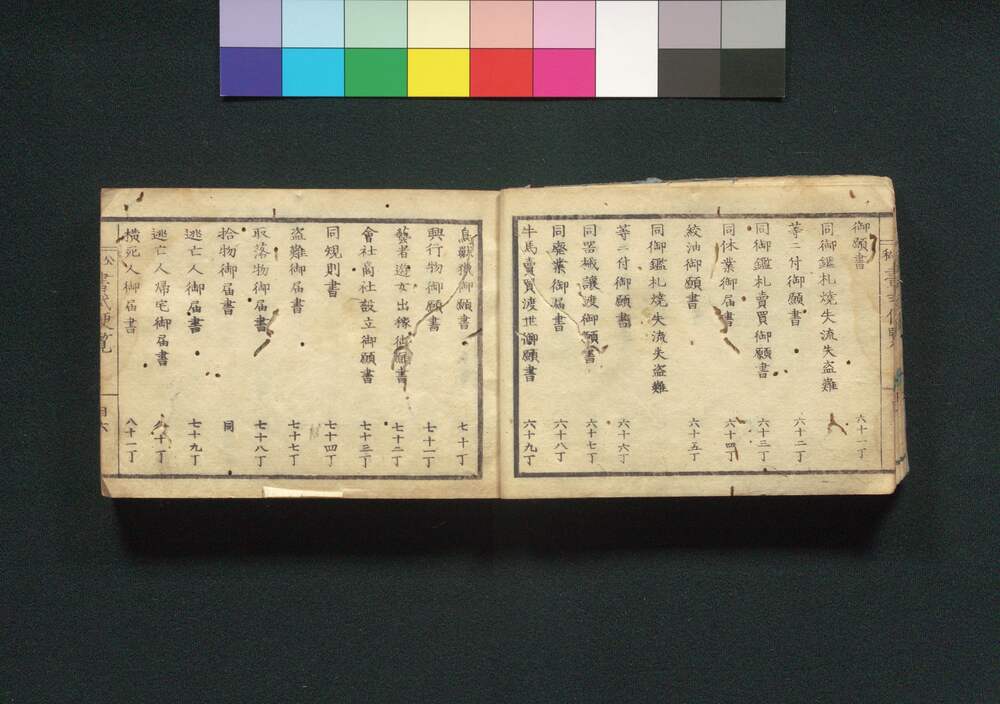 御願書 六十一丁
同御鑑札焼失流失盗難
等ニ付御願書 六十二丁
同御鑑札賣買御願書 六十三丁
同休業御届書 六十四丁
絞油御願書 六十五丁
同御鑑札焼失流失盗難
等ニ付御願書 六十六丁
同器械譲渡御願書 六十七丁
同廢業御届書 六十八丁
牛馬賣買渡世御願書 六十九丁
鳥獣猟御願書 七十丁
興行物御願書 七十一丁
藝者遊女出稼御願書 七十二丁
會社商社設立御願書 七十三丁
同規則書 七十四丁
盗難御届書 七十七丁
取落物御届書 七十八丁
拾物御届書 同
逃亡人御届書 七十九丁
逃亡人帰宅御届書 八十丁
横死人御届書 八十一丁
公 書式便覧 目六